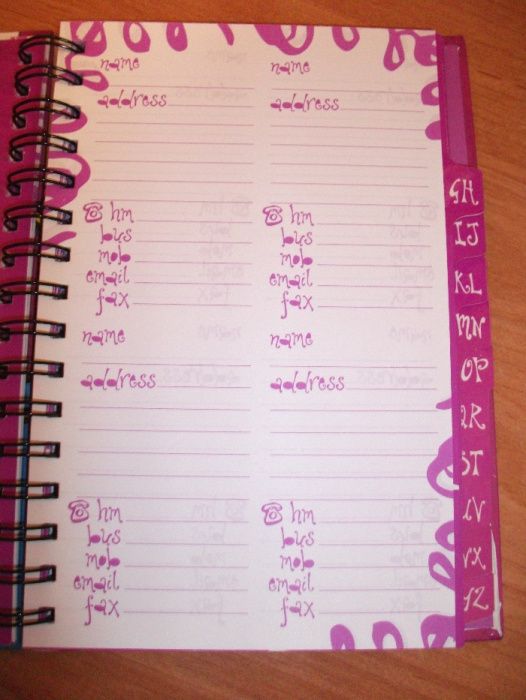 name
address
hm
bus
mob
email
fax
name
address
hm
bus
mob
email
fax
name
address
hm
bus
mob
email
fax
name
address
hm
bus
mob
email
fax
GH
IJ
KL
MN
OP
QR
ST
UV
YZ